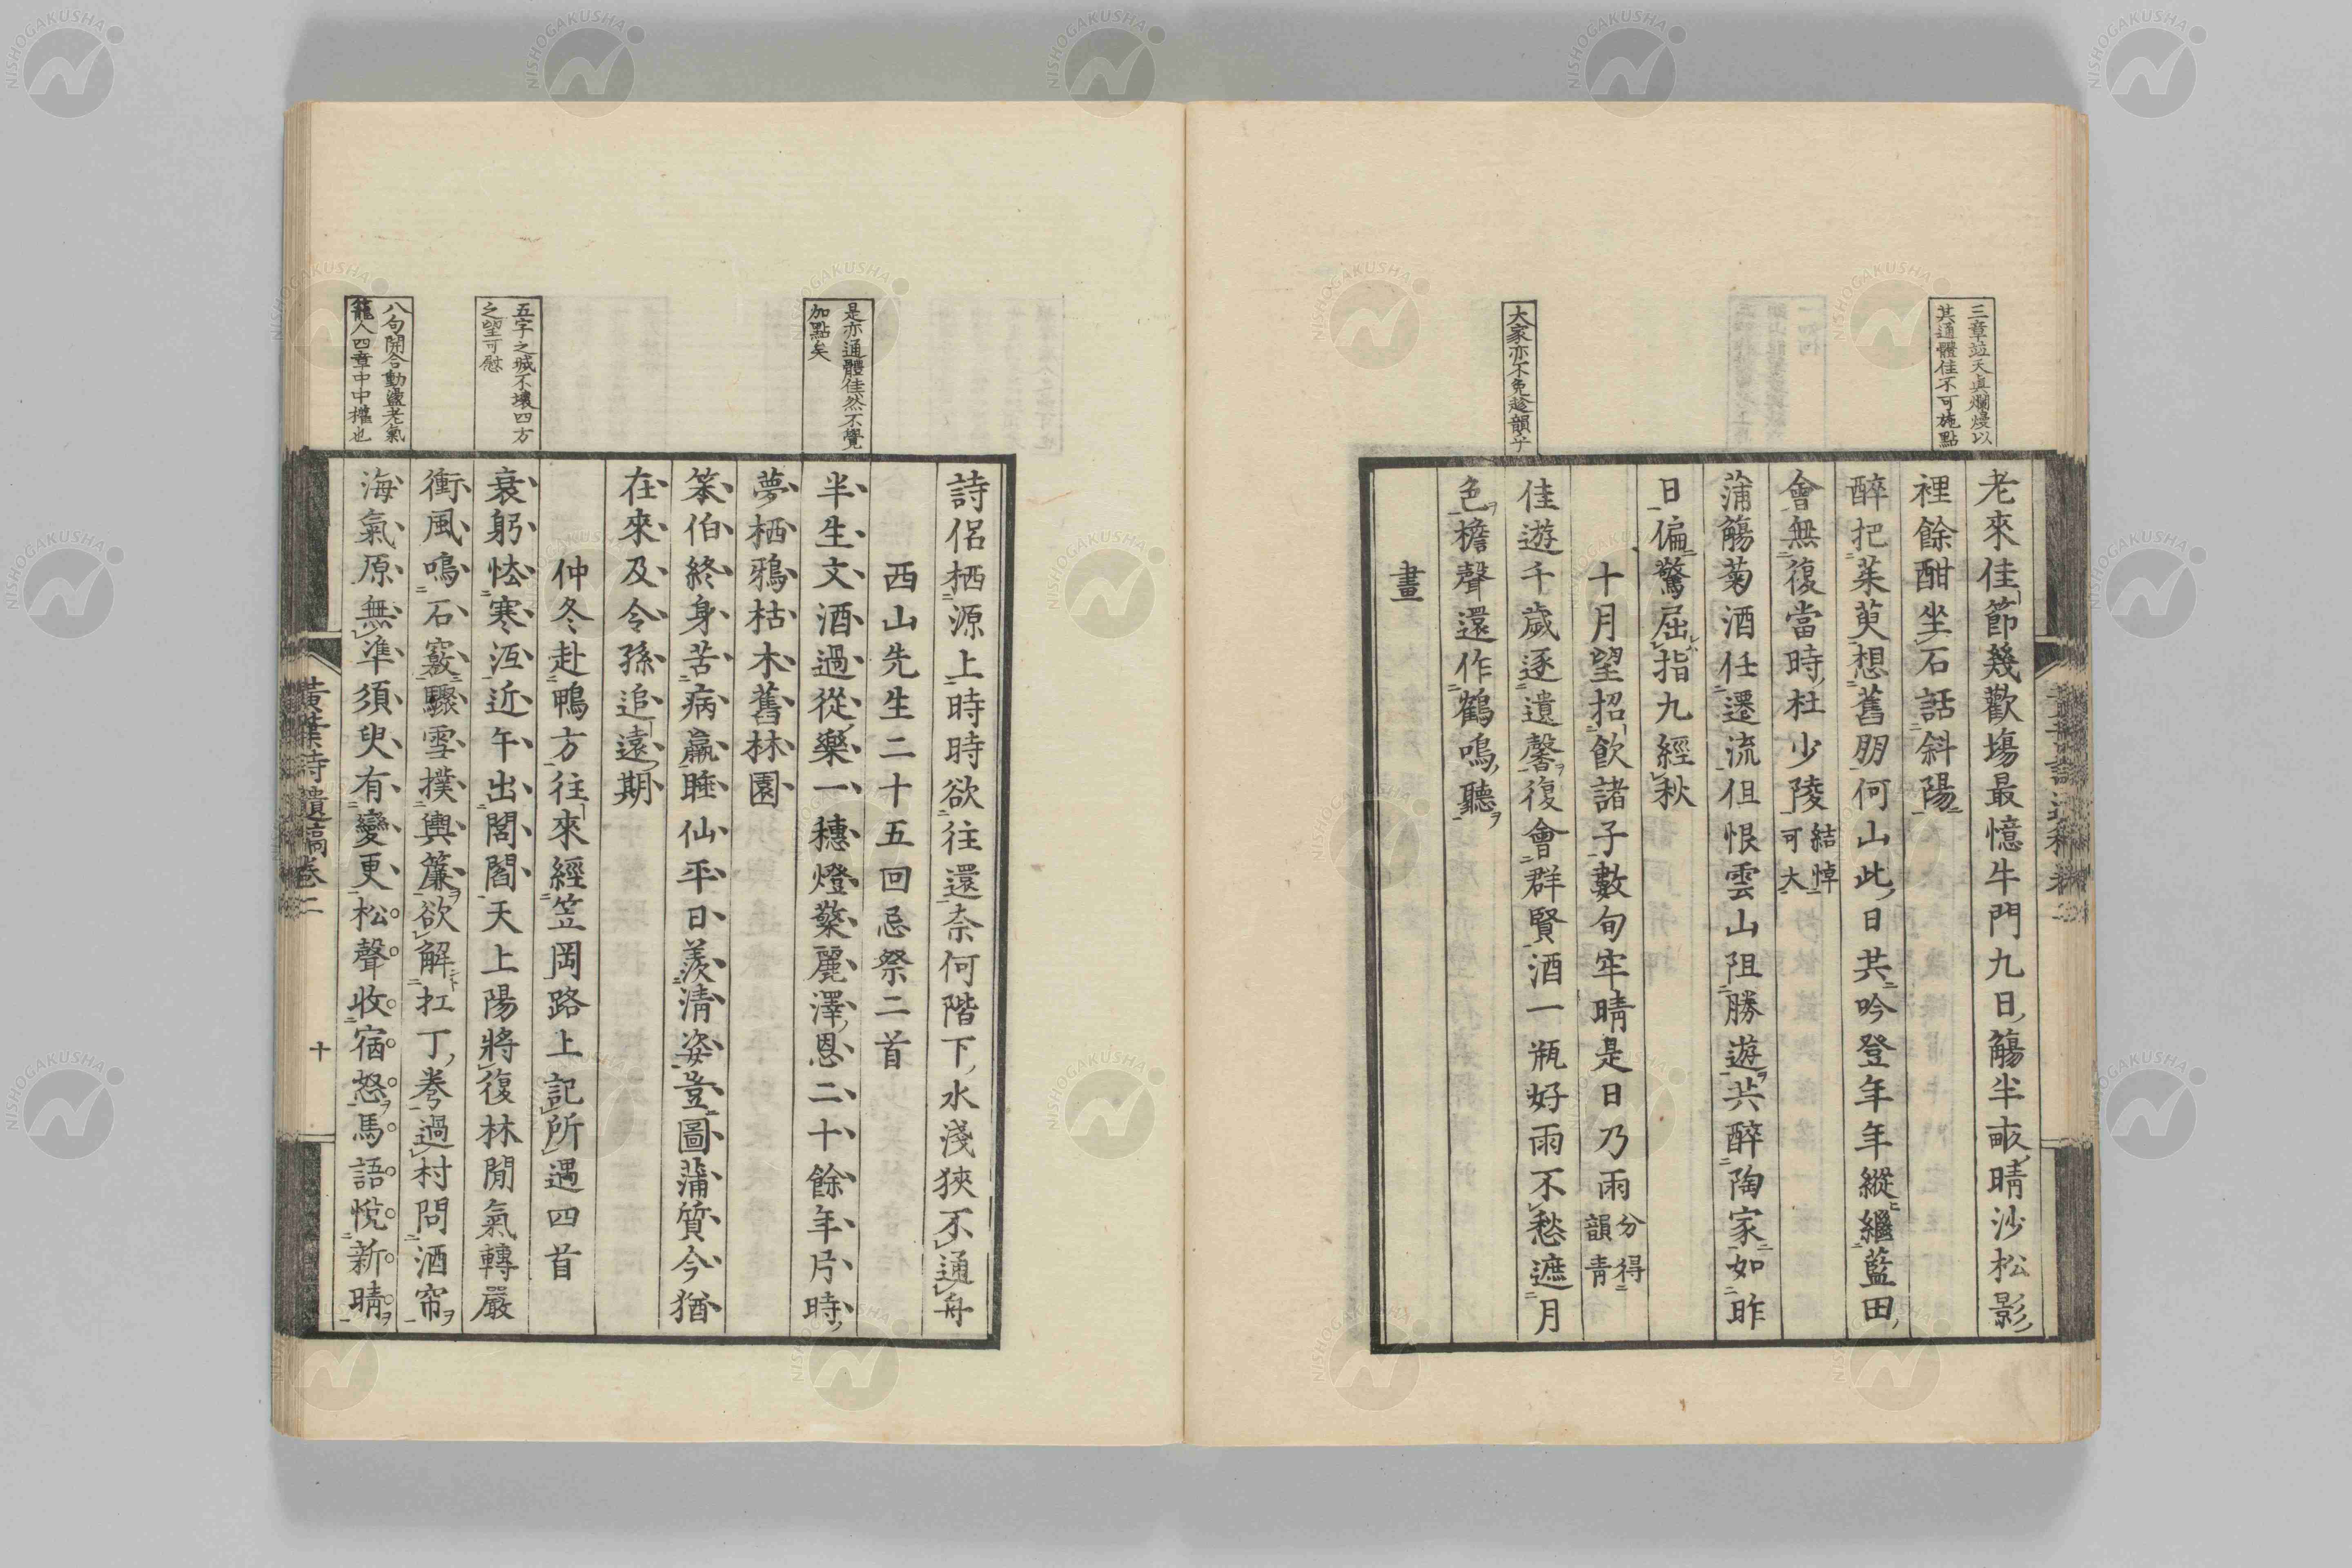 三章竝天眞爛熳以
其通體佳不可施點
大家亦不免趁韻乎
老來佳節幾歡塲最憶牛門九日觴半畝晴沙松影
裡餘酣坐石話斜陽
醉把茱萸想舊朋何山此日共吟登年年縱繼藍田
會無復當時杜少陵結悼可大
蒲觴菊酒任遷流但恨雲山阻勝遊共醉陶家如昨
日偏驚屈指九經秋
十月望招飮諸子數旬牢晴是日乃雨分得韻靑
佳遊千歲逐遺馨復會群賢酒一瓶好雨不愁遮月
色檐聲還作鶴鳴聽
畫
是亦通體佳然不覺
加點矣
五字之城不壞四方
之望可慰
八句開合動盪老氣
籠人四章中中權也
詩侶栖源上時時欲往還奈何階下水淺狹不通舟
西山先生二十五回忌祭二首
半生文酒過從樂一穗燈檠麗澤恩二十餘年片時
夢栖鴉枯木舊林園
笨伯終身苦病羸睡仙平日羨淸姿豈圖蒲質今猶
在來及令孫追遠期
仲冬赴鴨方往來經笠岡路上記所遇四首
衰躬怯寒沍近午出閤閣天上陽將復林閒氣轉嚴
衝風鳴石竅驟雪撲輿簾欲解扛丁劵過村問酒帘
海氣原無準須臾有變更松聲收宿怒馬語悅新晴
黃葉詩遺稿卷二
十
NISHOGAKUSHA